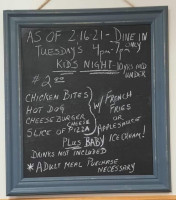 AS OF 2.16.21 - DINE IN ONLY
TUESDAY'S 4pm-7pm
KID'S NIGHT- 10 AND UNDER
CHICKEN BITES
HOT DOG
CHEESE BURGER
SLICE OF CHEESE PIZZA
W/ FRENCH FRIES
OR
APPLESAUCE
PLUS BABY ICE CREAM!
DRINKS NOT INCLUDED
*ADULT MEAL PURCHASE
NECESSARY